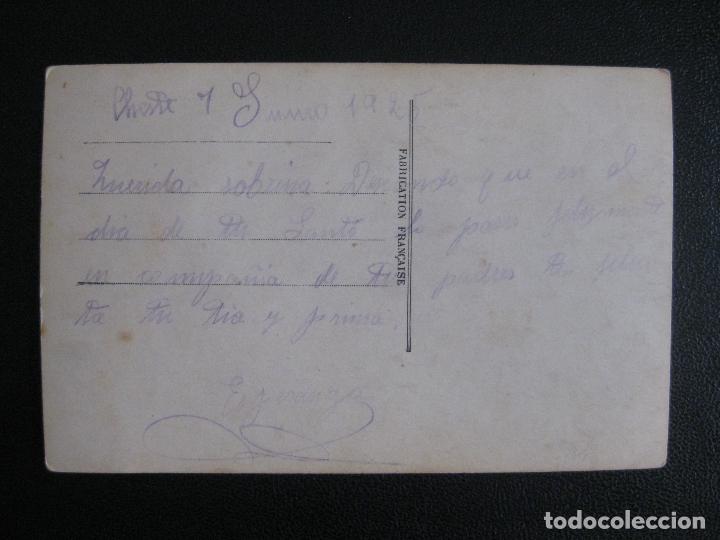 Cheste 1 Junio 1925
Querida sobrina. Deseando que en el
dia de tu Santo lo pases felizmente
en compañia de tus padres te felici
ta tu tia y prima.
Esperanza
FABRICATION FRANÇAISE
todocoleccion
todocoleccion.net